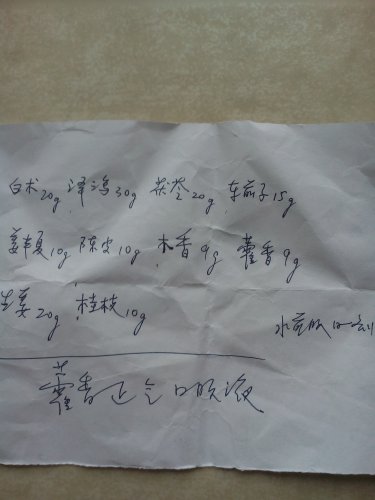 白术20g 泽泻30g 茯苓20g 车前子15g
姜半夏10g 陈皮10g 木香9g 藿香9g
生姜20g 桂枝10g
水煎服
藿香正气口服液